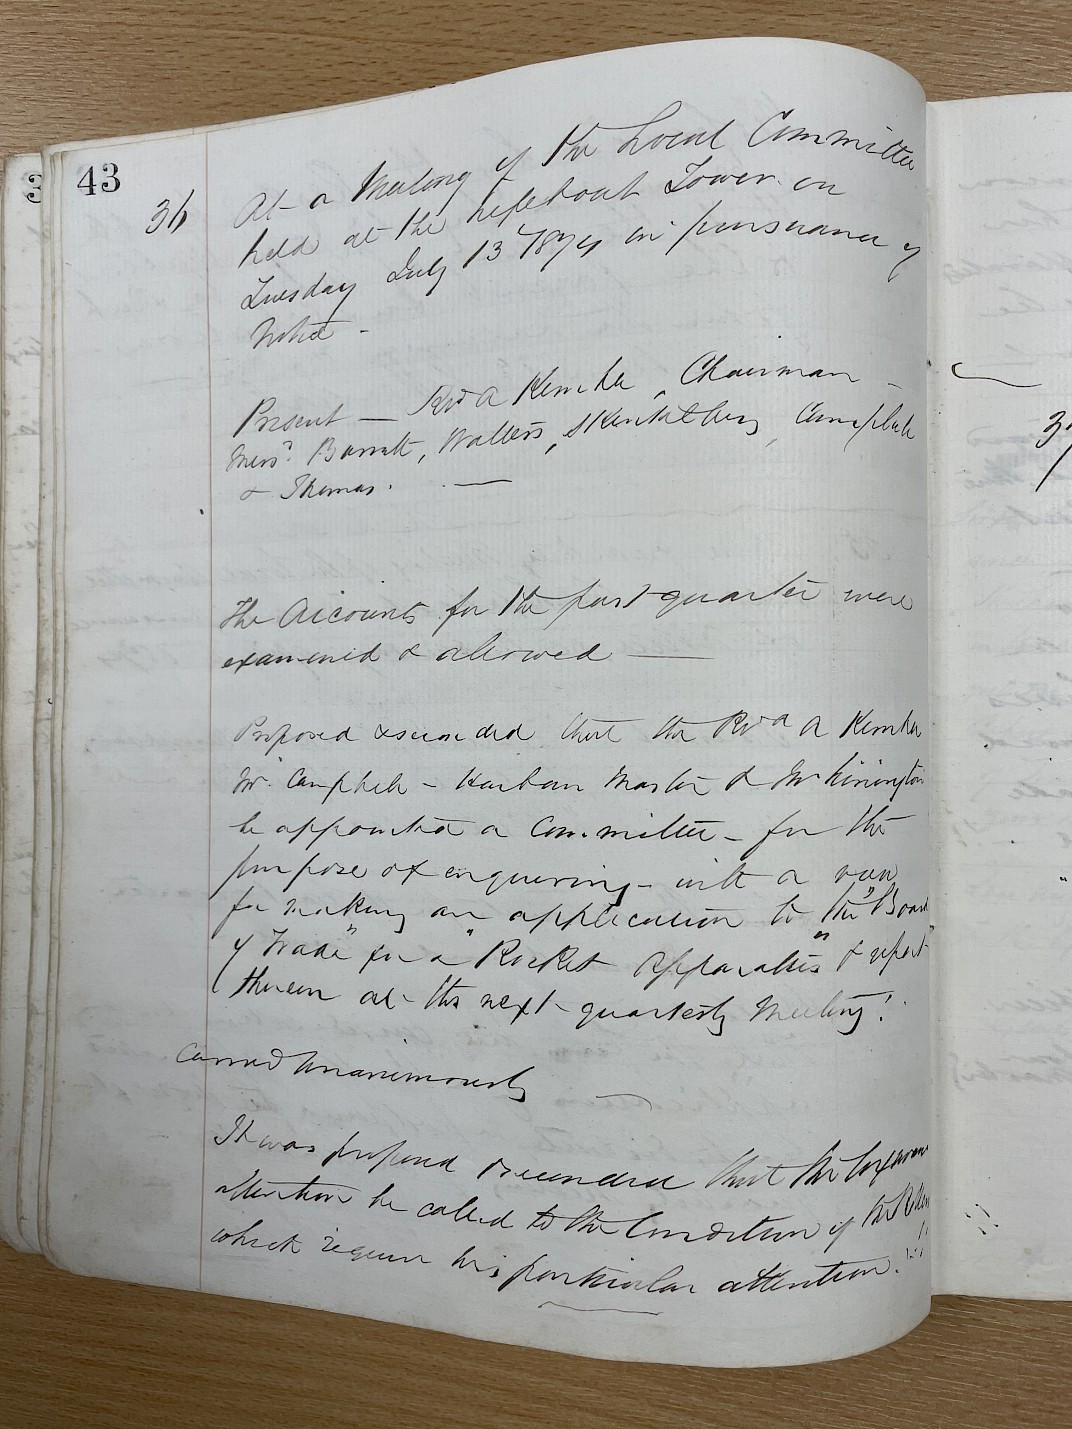 43
36
At a Meeting of the Local Committee
held at the Lifeboat Tower on
Tuesday July 13 in pursuance of
Notice -
Present — Revd A Kemble, Chairman -
Messrs. Barratt, Walters, Campbell
& Thomas. —
The Accounts for the past quarter were
examined & allowed —
Proposed & seconded that the Revd A Kemble
Mr Campbell - Harbour Master & Mr
be appointed a Committee - for the
purpose of enquiring - with a view
for making an application to the "Board
of Trade" for a "Rocket Apparatus" & report
thereon at the next quarterly Meeting!
Carried Unanimously
It was proposed & seconded that the Coxswain
attention be called to the Condition of the
which require his particular attention.